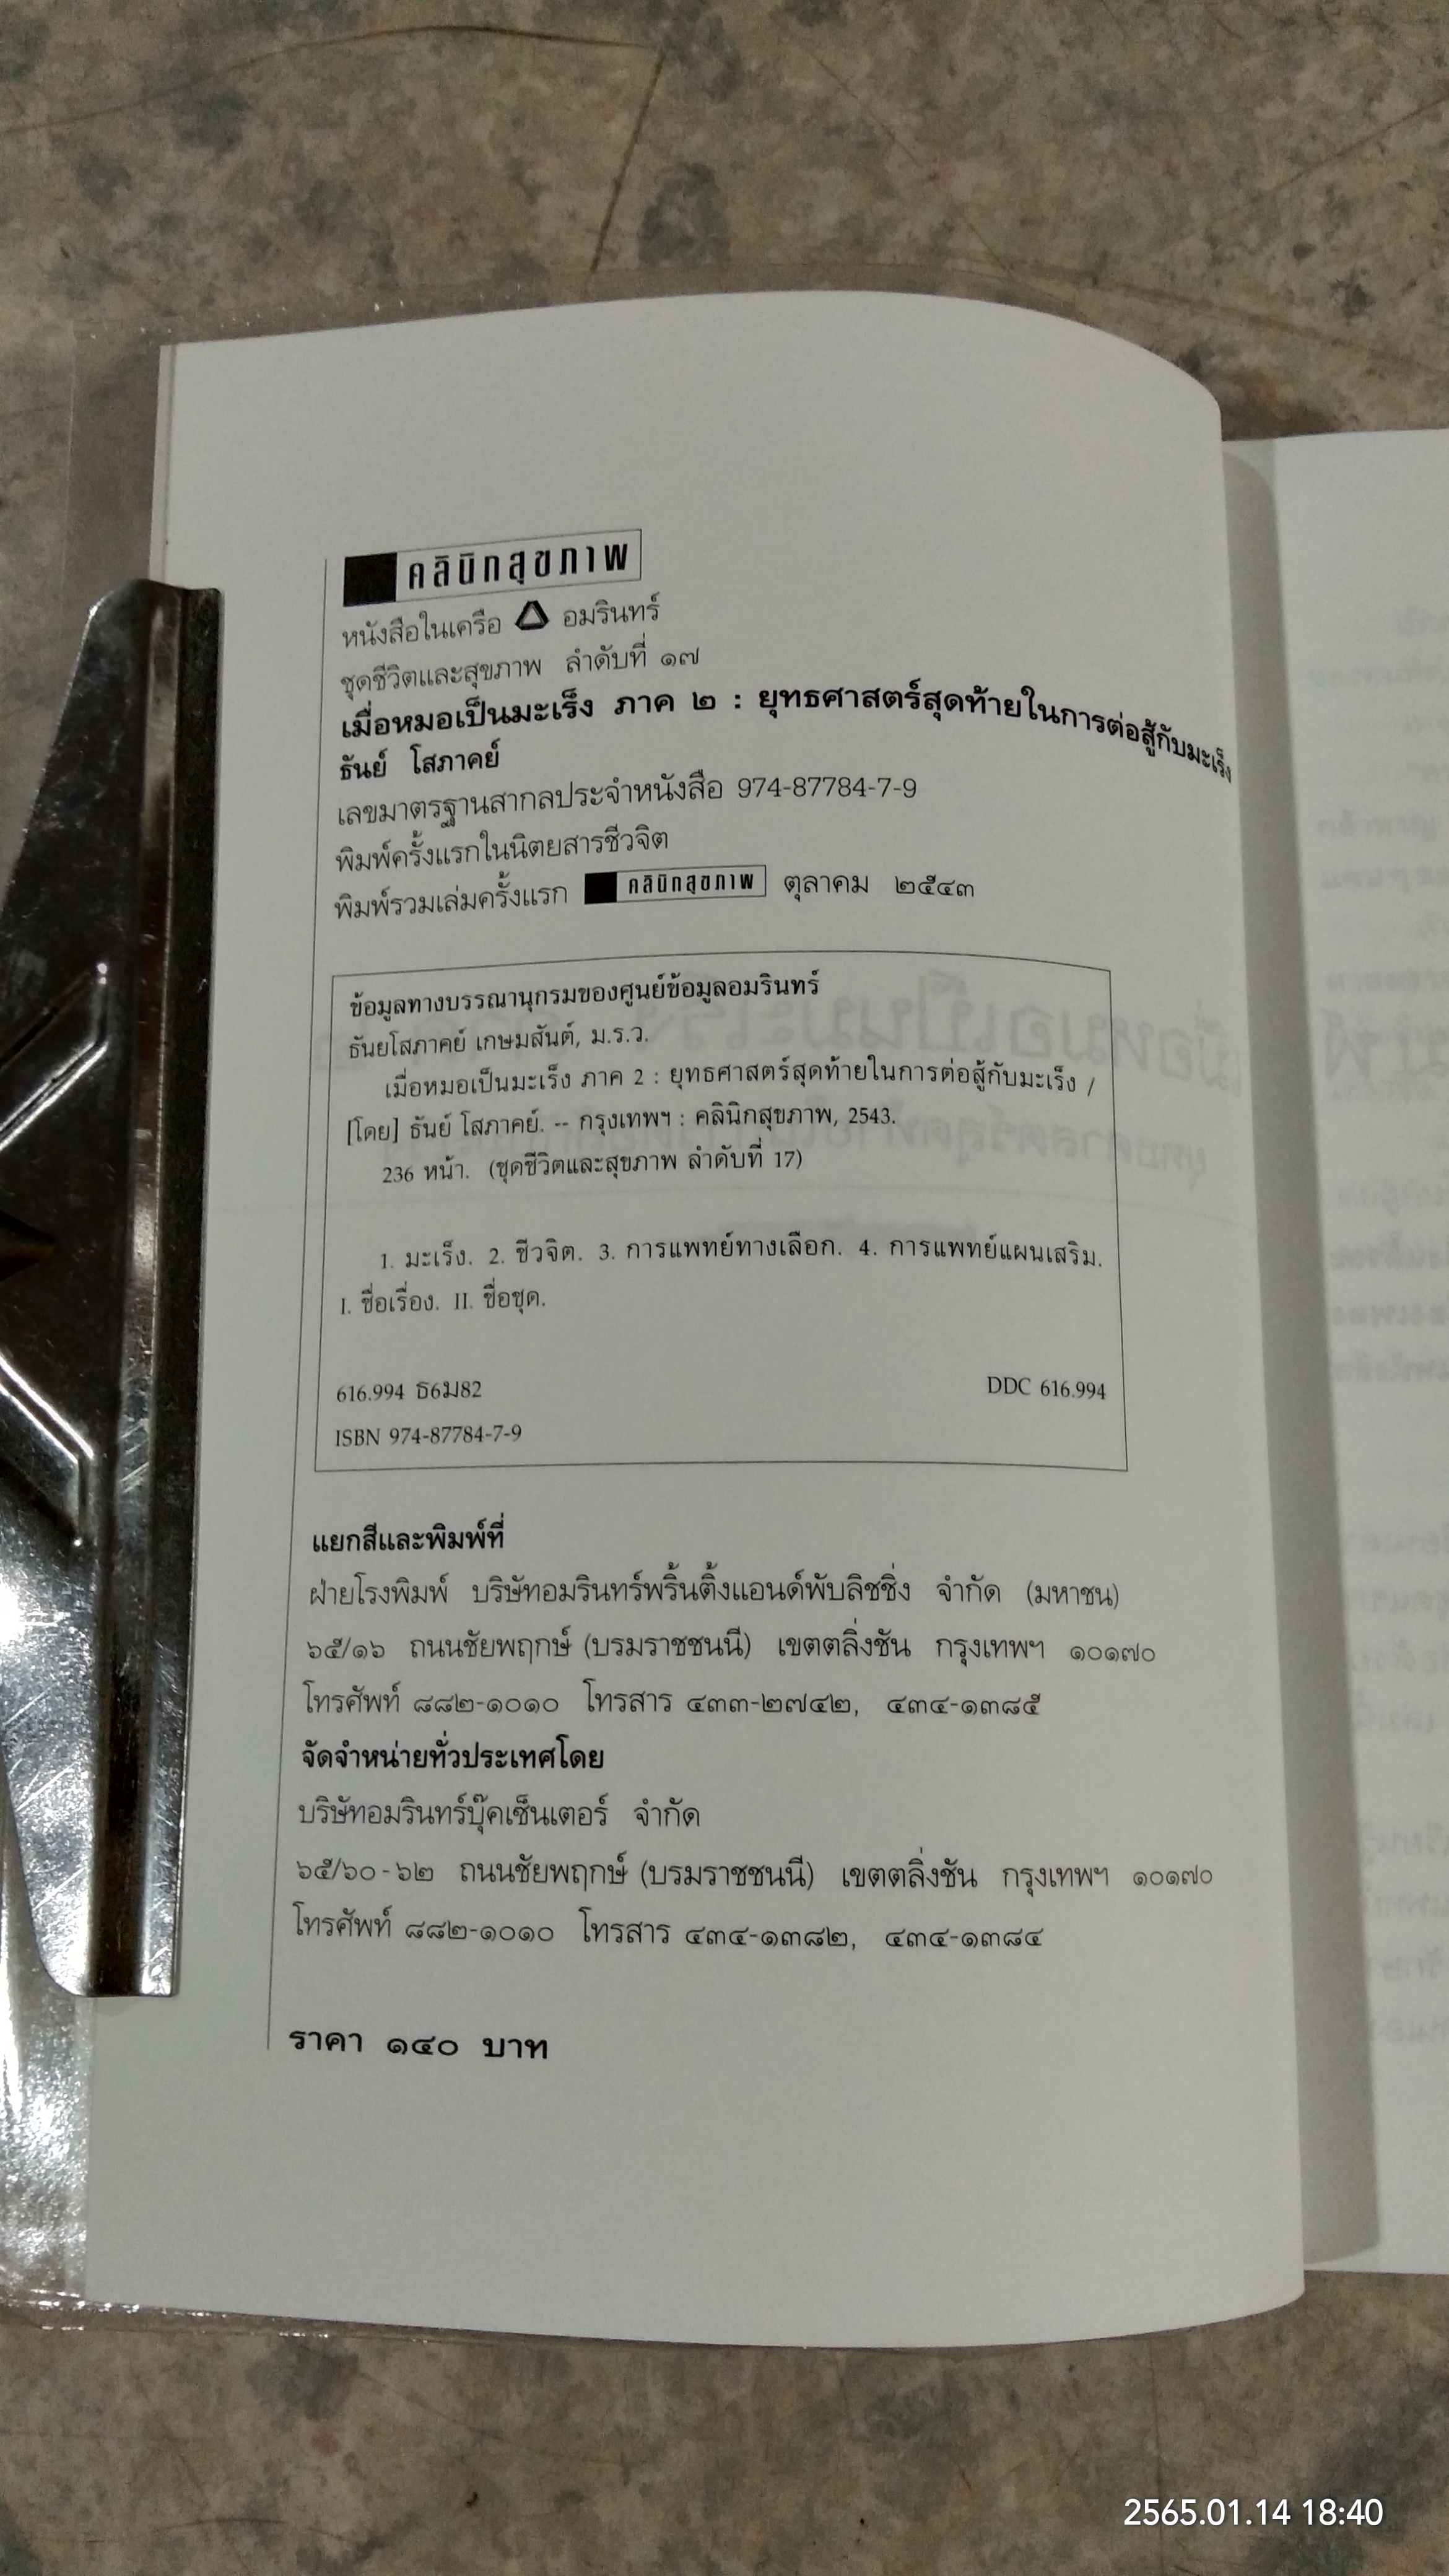 คลินิกสุขภาพ
หนังสือในเครือ อมรินทร์
ชุดชีวิตและสุขภาพ ลำดับที่ ๑๗
เมื่อหมอเป็นมะเร็ง ภาค ๒ : ยุทธศาสตร์สุดท้ายในการต่อสู้กับมะเร็ง
ธันย์ โสภาคย์
เลขมาตรฐานสากลประจำหนังสือ 974-87784-7-9
พิมพ์ครั้งแรกในนิตยสารชีวจิต
พิมพ์รวมเล่มครั้งแรก คลินิกสุขภาพ ตุลาคม ๒๕๔๓
ข้อมูลทางบรรณานุกรมของศูนย์ข้อมูลอมรินทร์
ธันยโสภาคย์ เกษมสันต์, ม.ร.ว.
เมื่อหมอเป็นมะเร็ง ภาค 2 : ยุทธศาสตร์สุดท้ายในการต่อสู้กับมะเร็ง /
[โดย] ธันย์ โสภาคย์. -- กรุงเทพฯ : คลินิกสุขภาพ, 2543.
236 หน้า. (ชุดชีวิตและสุขภาพ ลำดับที่ 17)
1. มะเร็ง. 2. ชีวจิต. 3. การแพทย์ทางเลือก. 4. การแพทย์แผนเสริม.
I. ชื่อเรื่อง. II. ชื่อชุด.
616.994 ธ6ม82 DDC 616.994
ISBN 974-87784-7-9
แยกสีและพิมพ์ที่
ฝ่ายโรงพิมพ์ บริษัทอมรินทร์พริ้นติ้งแอนด์พับลิชชิ่ง จำกัด (มหาชน)
๖๕/๑๖ ถนนชัยพฤกษ์ (บรมราชชนนี) เขตตลิ่งชัน กรุงเทพฯ ๑๐๑๗๐
โทรศัพท์ ๘๘๒-๑๐๑๐ โทรสาร ๔๓๓-๒๗๔๒, ๔๓๔-๑๓๘๕
จัดจำหน่ายทั่วประเทศโดย
บริษัทอมรินทร์บุ๊คเซ็นเตอร์ จำกัด
๖๕/๖๐-๖๒ ถนนชัยพฤกษ์ (บรมราชชนนี) เขตตลิ่งชัน กรุงเทพฯ ๑๐๑๗๐
โทรศัพท์ ๘๘๒-๑๐๑๐ โทรสาร ๔๓๔-๑๓๘๒, ๔๓๔-๑๓๘๔
ราคา ๑๔๐ บาท
2565.01.14 18:40